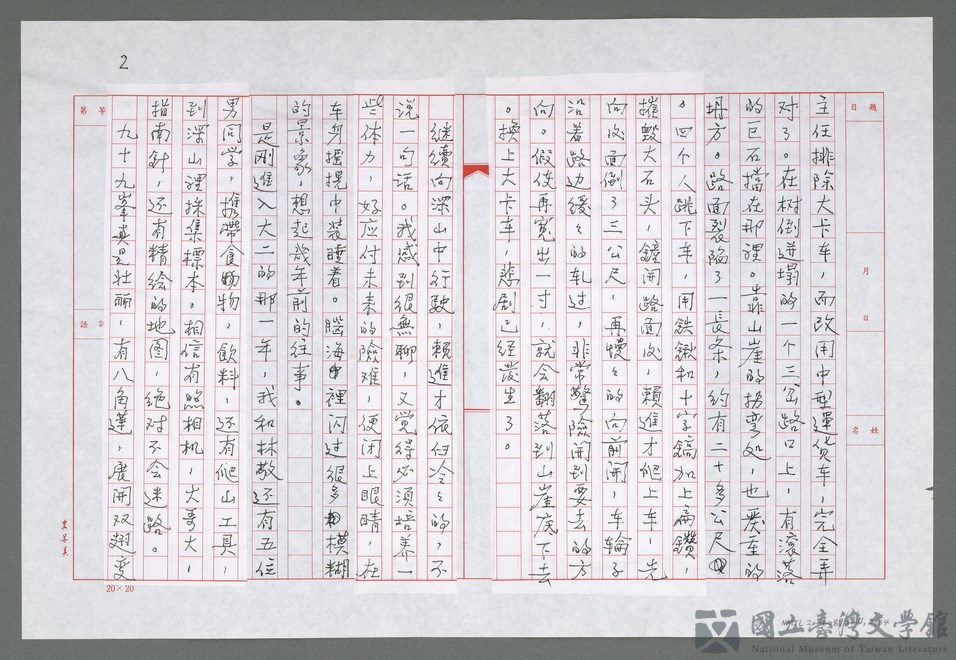 2
題目
月
日
姓名
第
等
評語
主任排除大卡車，而改用中型運貨車，完全弄
对了。在树倒迸塌的一个三岔路口上，有滚落
的巨石擋在那裡。靠山崖的拐弯处，也嚴重的
坍方。路面裂陷了一長条，約有二十多公尺
。四个人跳下车，用鉄鍬和十字鎬加上扁鑽，
摧毀大石头，鏟開路面後，賴進才爬上车，先
向後面倒了三公尺，再慢々的向前開，车輪子
沿着路边缓々的轧过，非常驚險開到要去的方
向。假使再寬出一寸，就会翻落到山崖底下去
。換上大卡车，悲剧已经發生了。
继续向深山中行駛，賴進才依旧冷々的，不
说一句话。我感到很無聊，又觉得必须培养一
些体力，好应付未来的險难，便闭上眼睛，在
车身摇摆中装睡着。腦海裡闪过很多模糊
的景象，想起幾年前的往事。
是刚進入大二的那一年，我和林敬还有五位
男同学，携帶食物，飲料，还有爬山工具，
到深山裡採集標本。相信有照相机，大哥大，
指南針，还有精绘的地图，绝对不会迷路。
九十九峯真是壮丽，有八角蓮，展開双翅变
20×20
國立臺灣文学館
National Museum of Taiwan Literature